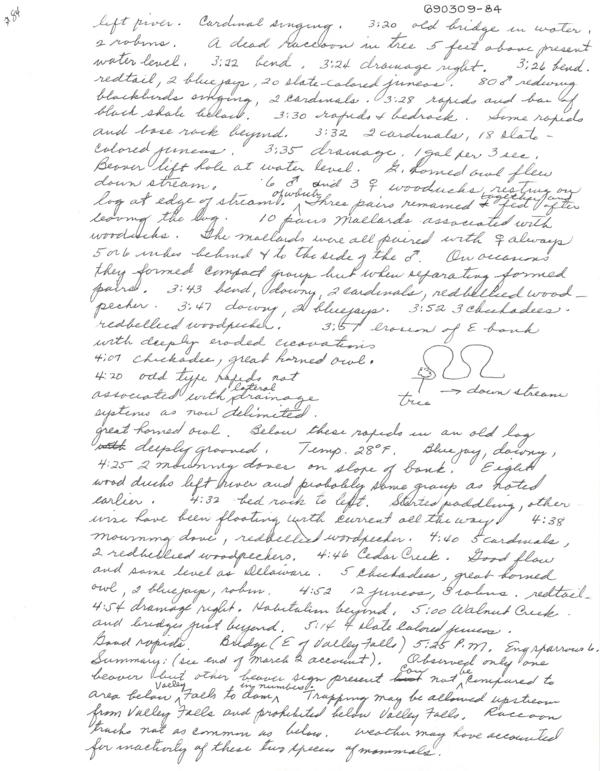 284
690309-84
left river. Cardinal singing. 3:20 old bridge in water,
2 robins. A dead raccoon in tree 5 feet above present
water level. 3:22 bend. 3:24 drainage right. 3:26 bend.
redtail, 2 bluejays, 20 slate-colored juncos. 80 ♂ redwing
blackbirds singing, 2 cardinals. 3:28 rapids and bar of
black shale below. 3:30 rapids & bedrock. Some rapids
and base rock beyond. 3:32 2 cardinals, 18 slate-
colored juncos. 3:35 drainage. 1 gal per 3 sec.
Beaver lift hole at water level. G. horned owl flew
down stream. 6 ♂ and 3 ♀ woodducks resting on
log at edge of stream. of which Three pairs remained together and & fed after
leaving the log. 10 pairs Mallards associated with
woodducks. The mallards were all paired with ♀ always
5 or 6 inches behind & to the side of the ♂. On occasions
they formed compact group but when separating formed
pairs. 3:43 bend, downy, 2 cardinals, redbellied wood-
pecker. 3:47 downy, 2 bluejays. 3:52 3 chickadees.
redbellied woodpecker. 3:57 erosion of E bank
with deeply eroded excavations
4:07 chickadee, great horned owl.
4:20 odd type rapids not
associated with lateral drainage
systems as now delimited.
tree → down stream
great horned owl. Below these rapids in an old log
with deeply grooved. Temp. 28°F. Bluejay, downy,
4:25 2 mourning doves on slope of bank. Eight
wood ducks left river and probably some group as noted
earlier. 4:32 bed rock to left. Started paddling, other-
wise have been floating with current all the way. 4:38
mourning dove, redbellied woodpecker. 4:40 5 cardinals,
2 redbellied woodpeckers. 4:46 Cedar Creek. Good flow
and same level as Delaware. 5 chickadees, great horned
owl, 2 bluejays, robin. 4:52 12 juncos, 3 robins. redtail-
4:54 drainage right. Habitation beyond. 5:00 Walnut Creek
and bridges just beyond. 5:14 4 slate colored juncos.
Good rapids. Bridge (E of Valley Falls) 5:25 P.M. Eng sparrows 6.
Summary: (see end of March 2 account). Observed only one
beaver but other beaver sign present but can not be compared to
area below Valley Falls to dam in numbers. Trapping may be allowed upstream
from Valley Falls and prohibited below Valley Falls. Raccoon
tracks not as common as below. Weather may have accounted
for inactivity of these two species of mammals.